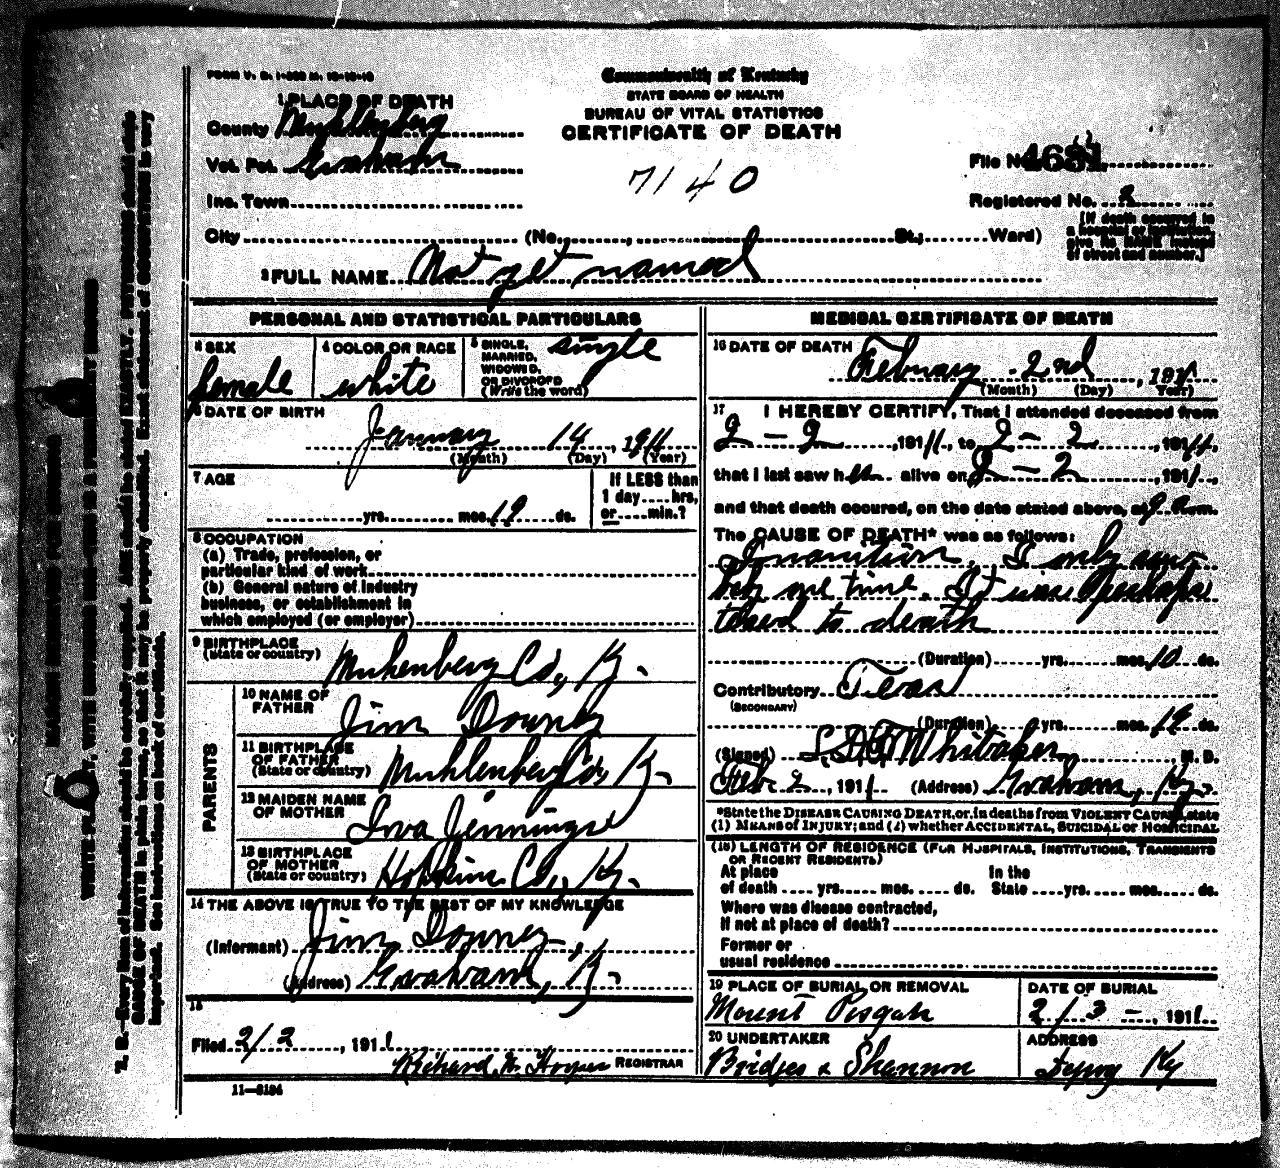 FORM V. S. 1-
Commonwealth of Kentucky
STATE BOARD OF HEALTH
BUREAU OF VITAL STATISTICS
CERTIFICATE OF DEATH
1 PLACE OF DEATH
County Muhlenberg
Vot. Pct. Graham
Inc. Town
City (No. , St.; Ward)
7140
File No.
Registered No.
[If death occurred in
a hospital or institution,
give its NAME instead
of street and number.]
2 FULL NAME Not yet named
PERSONAL AND STATISTICAL PARTICULARS
3 SEX
female
4 COLOR OR RACE
white
5 SINGLE,
MARRIED,
WIDOWED,
OR DIVORCED
(Write the word)
single
6 DATE OF BIRTH
January 14, 1911
(Month) (Day) (Year)
7 AGE
yrs. mos. 19 ds.
If LESS than
1 day.... hrs,
or.....min.?
8 OCCUPATION
(a) Trade, profession, or
particular kind of work
(b) General nature of industry
business, or establishment in
which employed (or employer)
9 BIRTHPLACE
(State or country)
Muhlenberg Co., Ky.
PARENTS
10 NAME OF
FATHER
Jim Downey
11 BIRTHPLACE
OF FATHER
(State or country)
Muhlenberg Co, Ky.
12 MAIDEN NAME
OF MOTHER
Iva Jennings
13 BIRTHPLACE
OF MOTHER
(State or country)
Hopkins Co., Ky.
14 THE ABOVE IS TRUE TO THE BEST OF MY KNOWLEDGE
(Informant) Jim Downey,
(Address) Graham, Ky.
15
Filed 2/2, 1911
Richard REGISTRAR
11—8184
MEDICAL CERTIFICATE OF DEATH
16 DATE OF DEATH
February 2nd, 1911
(Month) (Day) (Year)
17 I HEREBY CERTIFY, That I attended deceased from
2-2, 1911, to 2-2, 1911,
that I last saw her alive on 2-2, 1911,
and that death occured, on the date stated above, at 9 a.m.
The CAUSE OF DEATH* was as follows:
Inanition. I only saw
one time. It was Perhaps
to death
(Duration) yrs. mos. 10 ds.
Contributory
(SECONDARY)
(Duration) yrs. mos. 19 ds.
(Signed) Whitaker M. D.
Feb 2, 1911 (Address) Graham, Ky.
*State the DISEASE CAUSING DEATH, or, in deaths from VIOLENT CAUSES, state
(1) MEANS OF INJURY; and (2) whether ACCIDENTAL, SUICIDAL or HOMICIDAL
(18) LENGTH OF RESIDENCE (FOR HOSPITALS, INSTITUTIONS, TRANSIENTS
OR RECENT RESIDENTS)
At place In the
of death yrs. mos. ds. State yrs. mos. ds.
Where was disease contracted,
If not at place of death?
Former or
usual residence
19 PLACE OF BURIAL OR REMOVAL
Mount Pisgah
DATE OF BURIAL
2/3 -, 1911
20 UNDERTAKER
Bridges & Shannon
ADDRESS
Depoy Ky
MARGIN RESERVED FOR BINDING
WRITE PLAINLY, WITH UNFADING INK—THIS IS A PERMANENT RECORD
N. B.—Every item of information should be carefully supplied. AGE should be stated EXACTLY. PHYSICIANS should state
CAUSE OF DEATH in plain terms, so that it may be properly classified. Exact statement of OCCUPATION is very
important. See instructions on back of certificate.